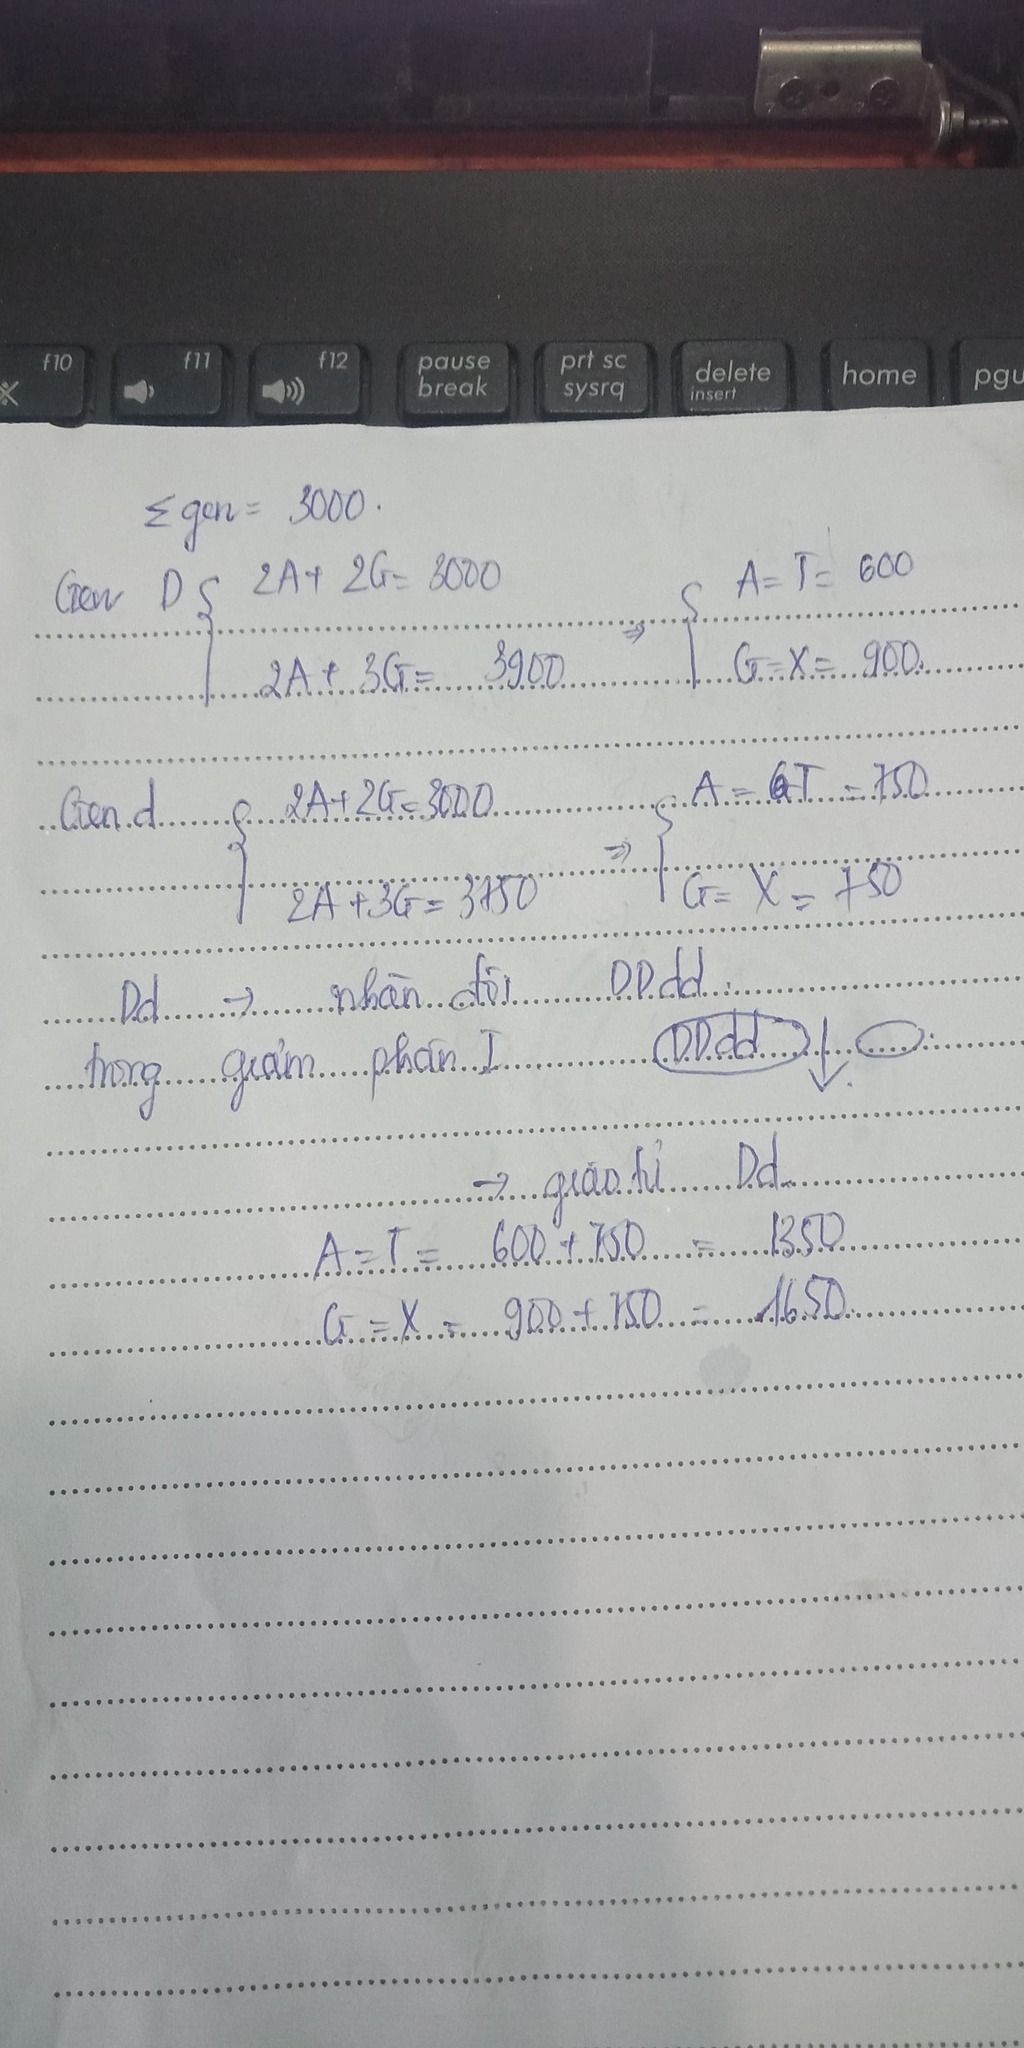 f10 f11 f12 pause break prt sc sysrq delete insert home pgu
Σ gen = 3000.
Gen D { 2A + 2G = 3000 ⇒ { A = T = 600
2A + 3G = 3900 G = X = 900.
Gen d { 2A + 2G = 3000 ⇒ { A = T = 750
2A + 3G = 3750 G = X = 750
Dd → nhân đôi DDdd.
trong giảm phân I DDdd ↓
→ giao tử Dd.
A = T = 600 + 750 = 1350
G = X = 900 + 750 = 1650.